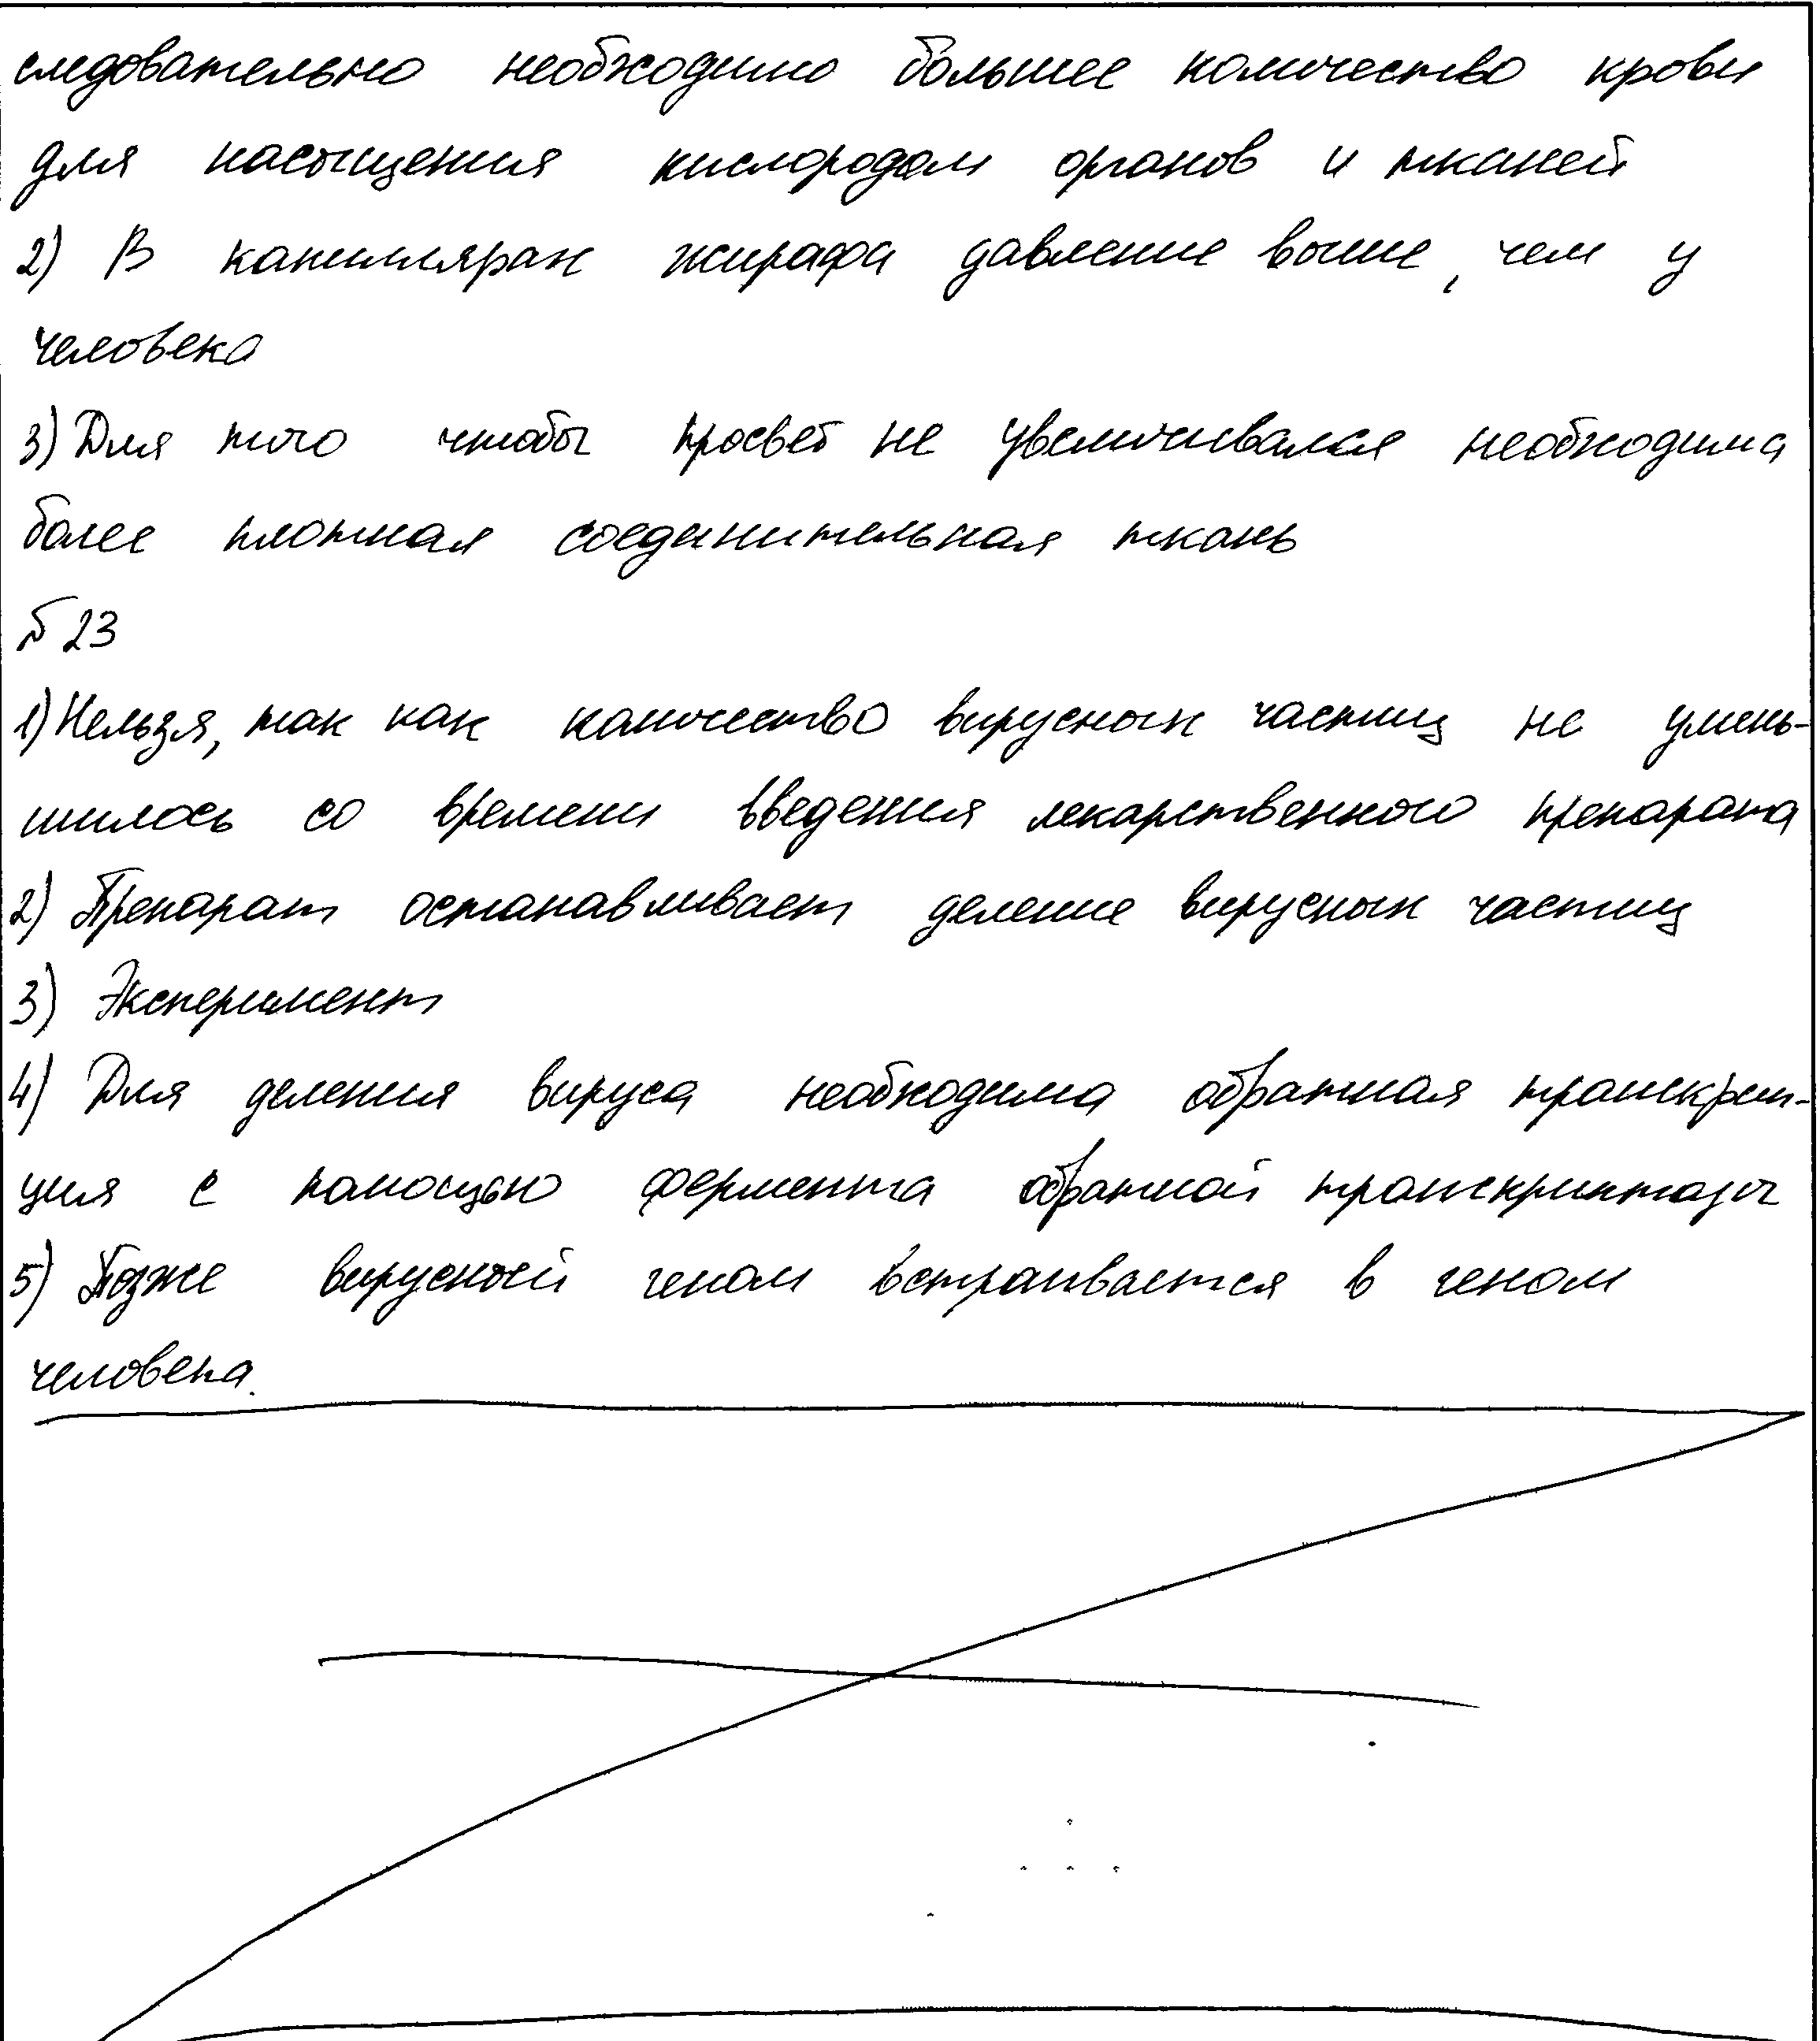 следовательно необходимо большее количество крови
для насыщения кислородом органов и тканей
2) В капиллярах жирафа давление выше, чем у
человека
3) Для того чтобы просвет не увеличивался необходима
более плотная соединительная ткань
№ 23
1) Нельзя, так как количество вирусных частиц не умень-
шилось со времени введения лекарственного препарата
2) Препарат останавливает деление вирусных частиц
3) Эксперимент
4) Для деления вируса необходима обратная транскрип-
ция с помощью фермента обратной транскриптазы
5) Позже вирусный геном встраивается в геном
человека.